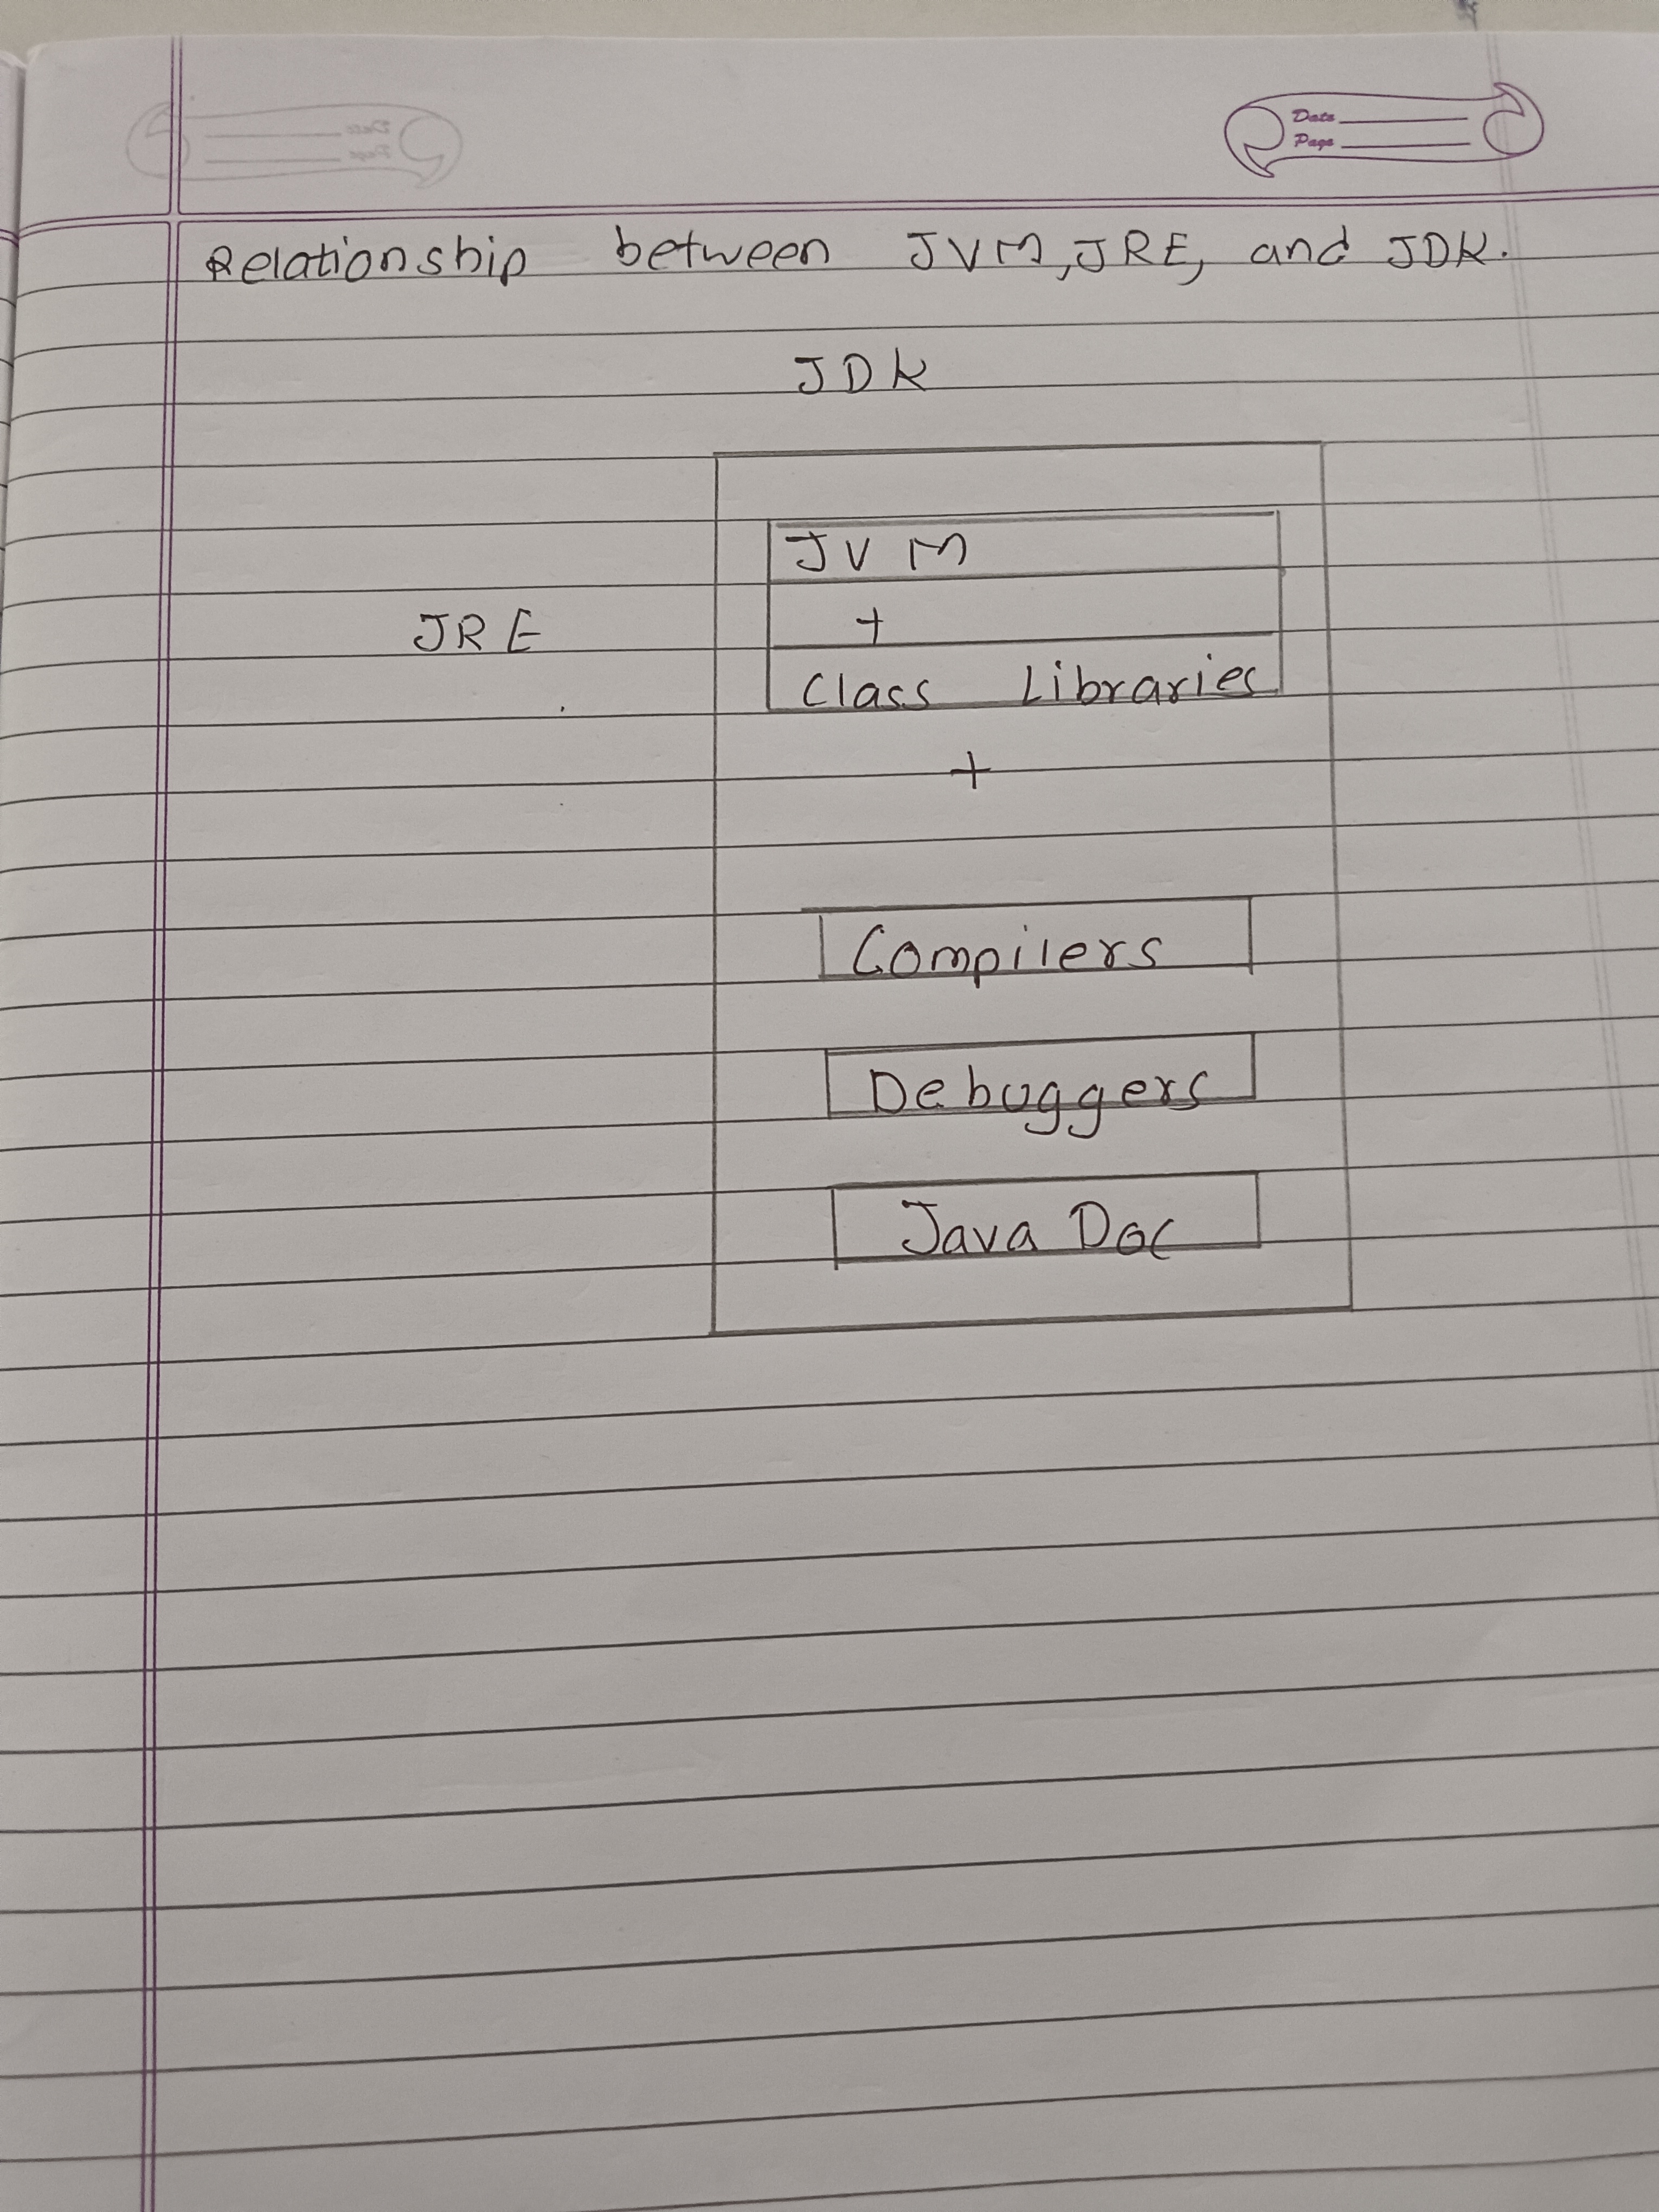 Date
Page
Relationship between JVM, JRE, and JDK.
JDK
JVM
JRE
+
Class Libraries
+
Compilers
Debuggers
Java Doc